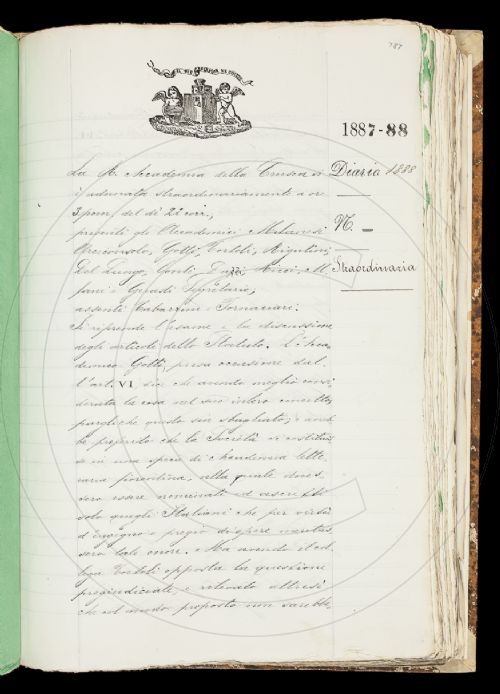 787
1887-88
Diario 1888
N. =
Straordinaria
La R. Accademia della Crusca si
è adunata straordinariamente a ore
3 pom. del dì 22 corr.,
presenti gli Accademici Milanesi
Arciconsolo, Gotti, Tortoli, Rigutini,
Del Lungo, Conti, Duzzi,
fani e Guasti Segretario,
assenti Tabarrini e Fornaciari.
Si riprende l'esame e la discussione
degli articoli dello Statuto. L'Acca
demico Gotti, presa occasione dal
l'art. VI dice che avendo meglio consi
derata la cosa nel suo intero concetto,
pargli che questo sia sbagliato; e avreb
be preferito che la Società si costituis
se in una specie di Accademia lette
raria fiorentina, alla quale doves
sero essere nominati ed ascritti
solo quegli Italiani che per virtù
d'ingegno e pregio di opere meritas
sero tale onore. Ma avendo il col
lega Tortoli opposta la questione
pregiudiciale, e rilevato altresì
che col modo proposto non sarebbe